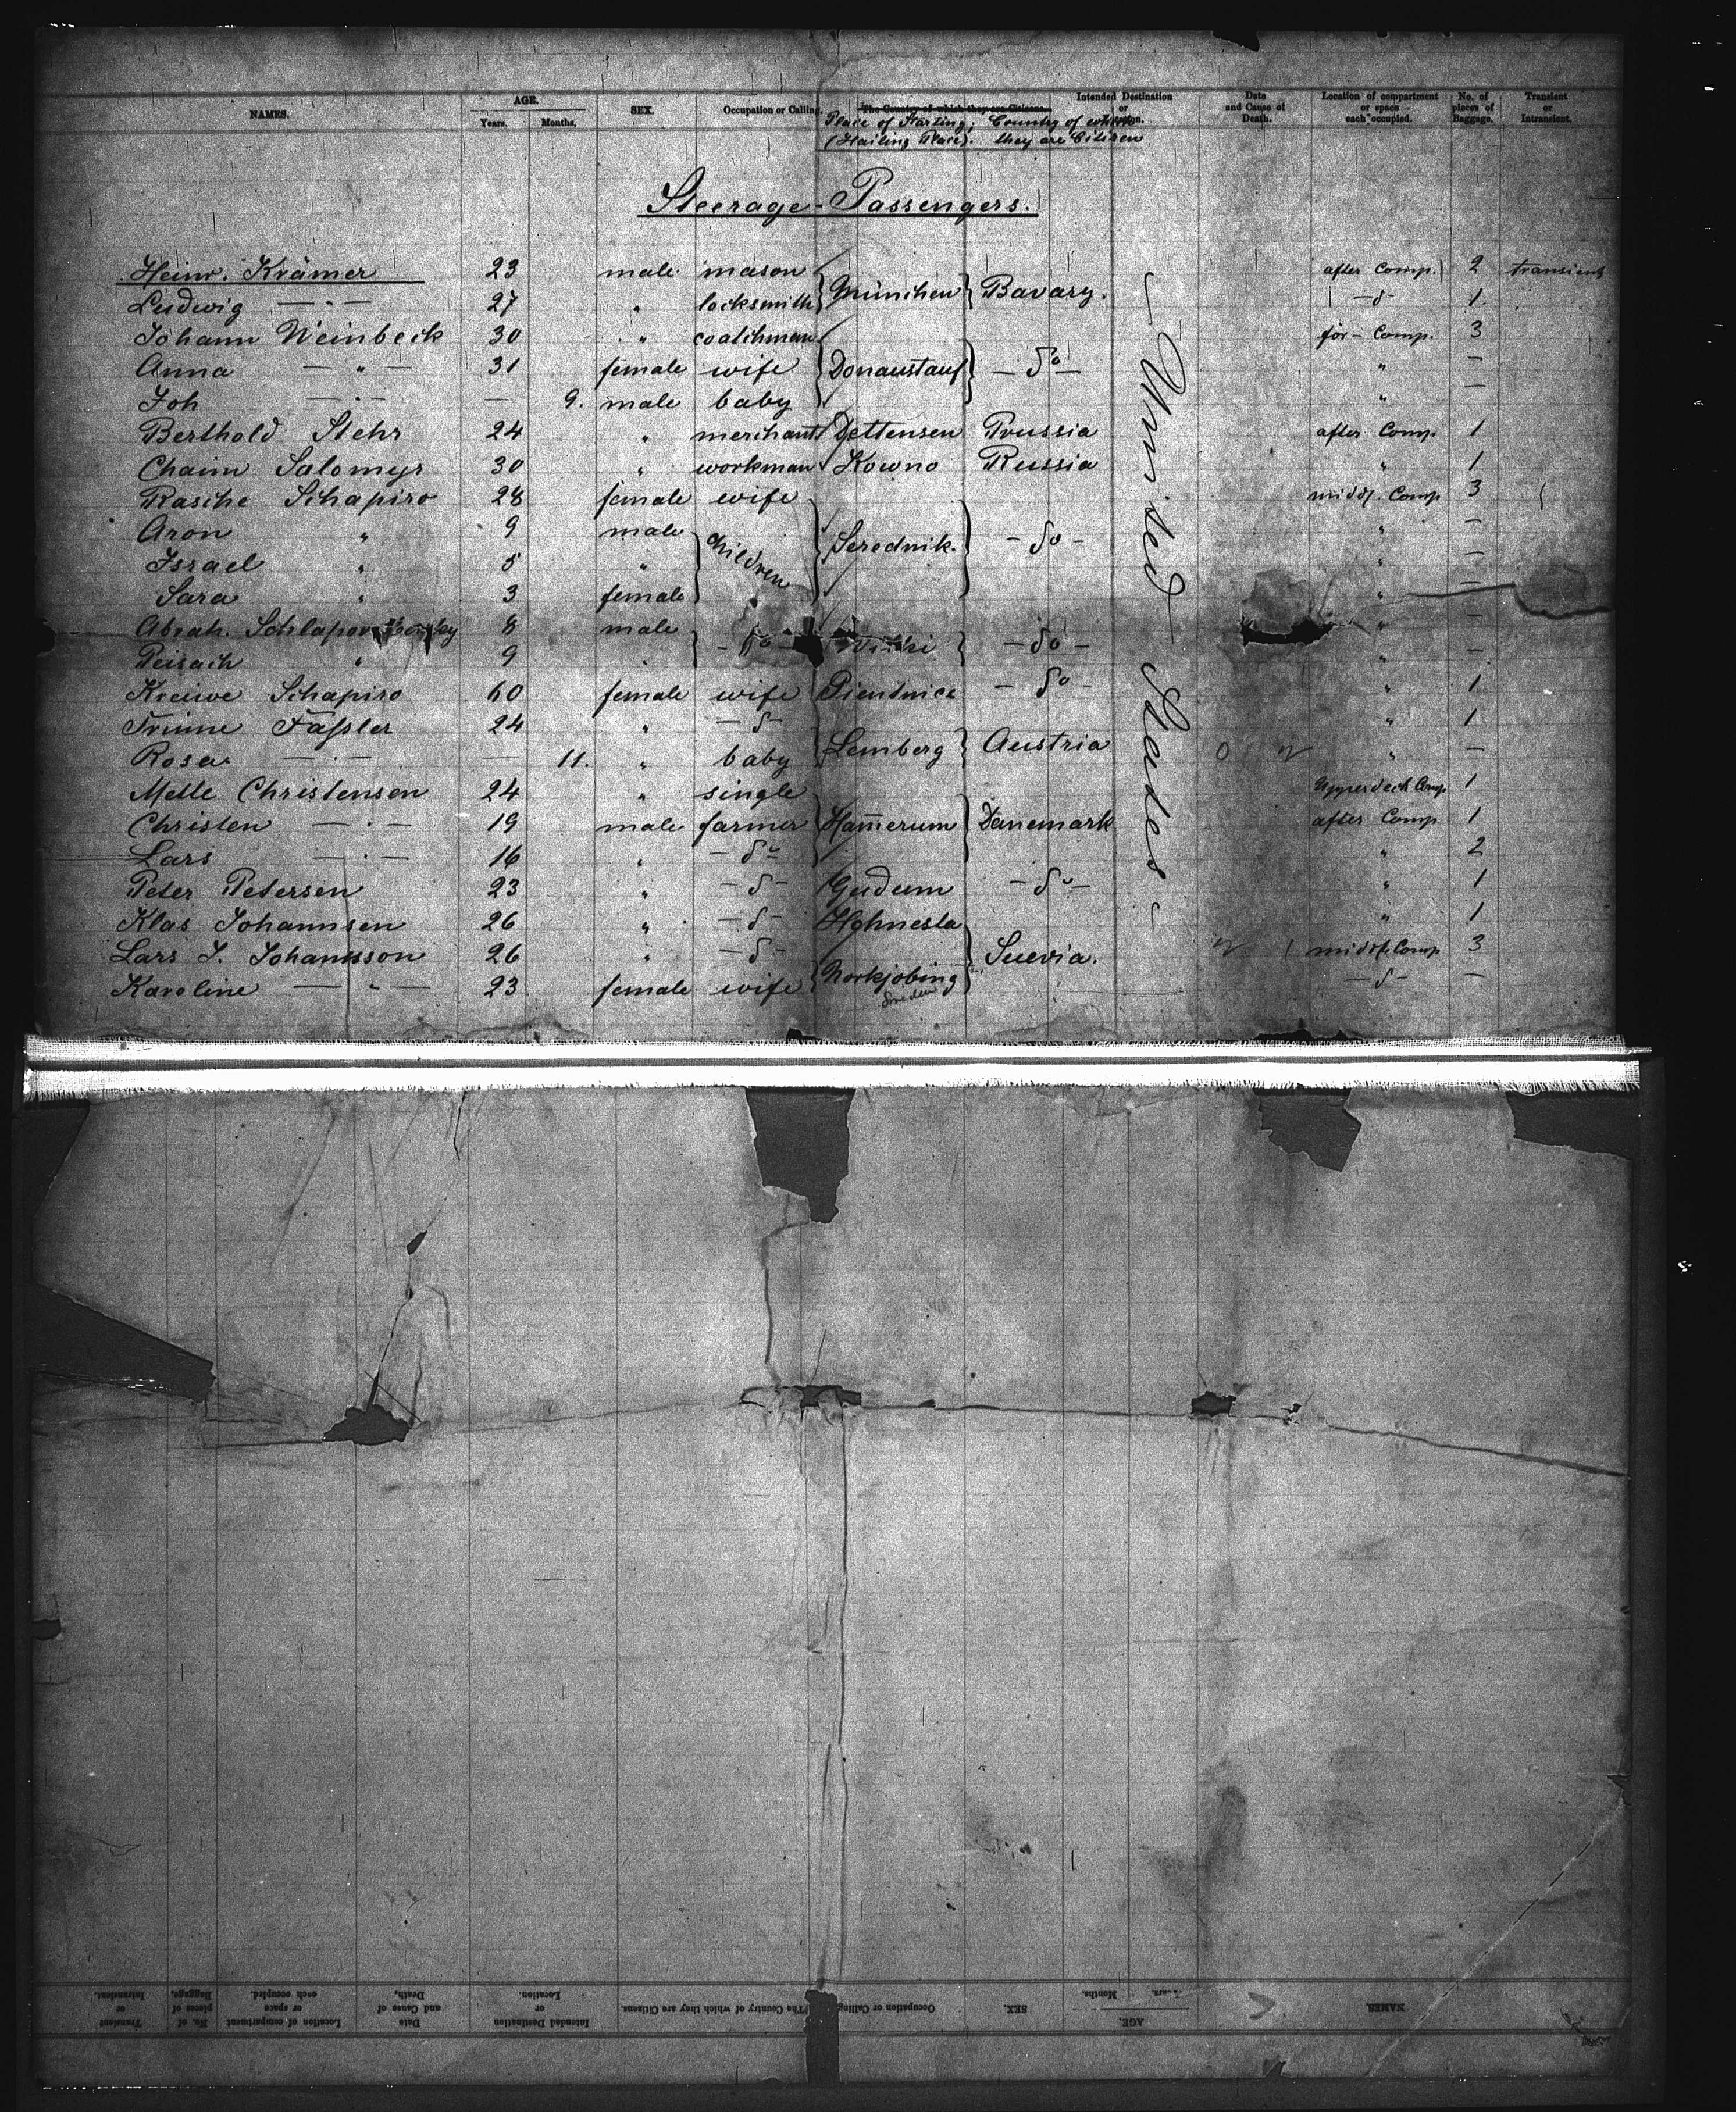 NAMES. AGE. Years. Months. SEX. Occupation or Calling. The Country of which they are Citizens. Intended Destination or Date and Cause of Death. Location of compartment or space each occupied. No. of pieces of Baggage. Transient or Intransient.
Place of Starting; Country of which
(Hailing Place). they are Citizen
Steerage-Passengers.
Heinr. Krämer 23 male mason München Bavary. after Comp. 2 transient
Ludwig — " — 27 " locksmith — d — 1.
Johann Weinbeck 30 " coatchman Donaustauf — do — for- Comp. 3
Anna — " — 31 female wife " —
Joh — " — — 9. male baby " —
Berthold Stehr 24 " merchant Dettensen Prussia after Comp. 1
Chaim Salomyr 30 " workman Kowno Russia " 1
Rasche Schapiro 28 female wife Serednik. — do — middl. Comp 3
Aron " 9 male children " —
Israel " 5 " " —
Sara " 3 female " —
Abrah. 8 male — do — — do — " —
Peisach " 9 " " —
Kreiwe Schapiro 60 female wife Pientnice — do — " 1
Trime Fassler 24 " — d — Lemberg Austria " 1
Rosa — " — — 11. " baby " —
Mette Christensen 24 " single Hamerum Danemark Upperdeck Comp 1
Christen — " — 19 male farmer after Comp 1
Lars — " — 16 " — do — " 2
Peter Petersen 23 " — d — Gudum — do — " 1
Klas Johannsen 26 " — d — Hohnesta Suevia. " 1
Lars J. Johansson 26 " — d — Norkjobing middl. Comp 3
Karoline — " — 23 female wife Sweden — d — —
— United States —
NAMES. AGE. Years. Months. SEX. Occupation or Calling The Country of which they are Citizens. Intended Destination or Location. Date and Cause of Death. Location of compartment or space each occupied. No. of pieces of Baggage. Transient or Intransient.